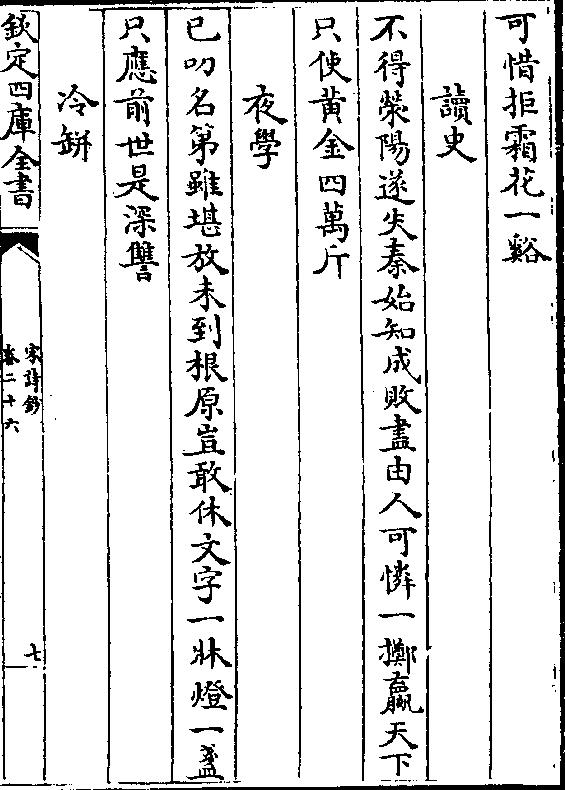 可惜拒霜花一谿
讀史
不得滎陽遂失秦始知成敗盡由人可憐一擲贏天下
只使黃金四萬斤
夜學
已叨名第雖堪放未到根原豈敢休文字一牀燈一盞
只應前世是深讐
冷缾
欽定四庫全書
宋詩鈔
卷二十六
七